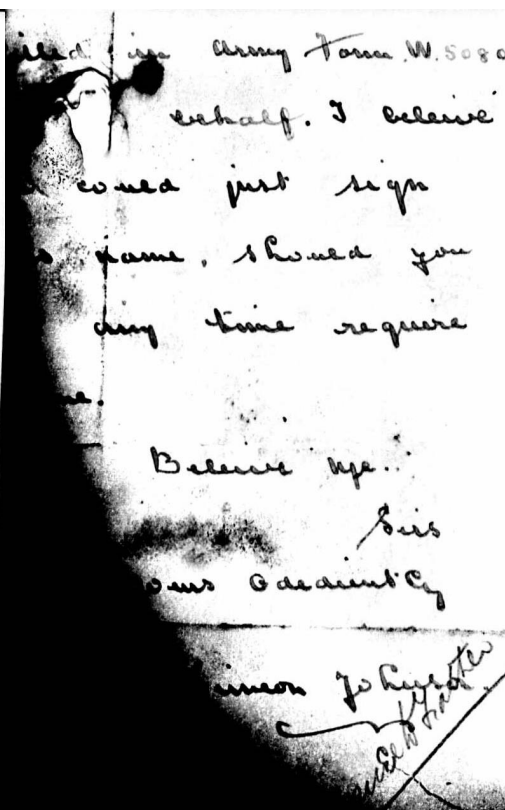 in Army Form W. 5080
behalf. I beleive
could just sign
name, should you
any time require
Beleive me.
Sir
Obediently